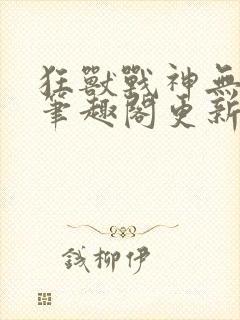 狂獸戰神無
筆趣閣更新
錢柳伊